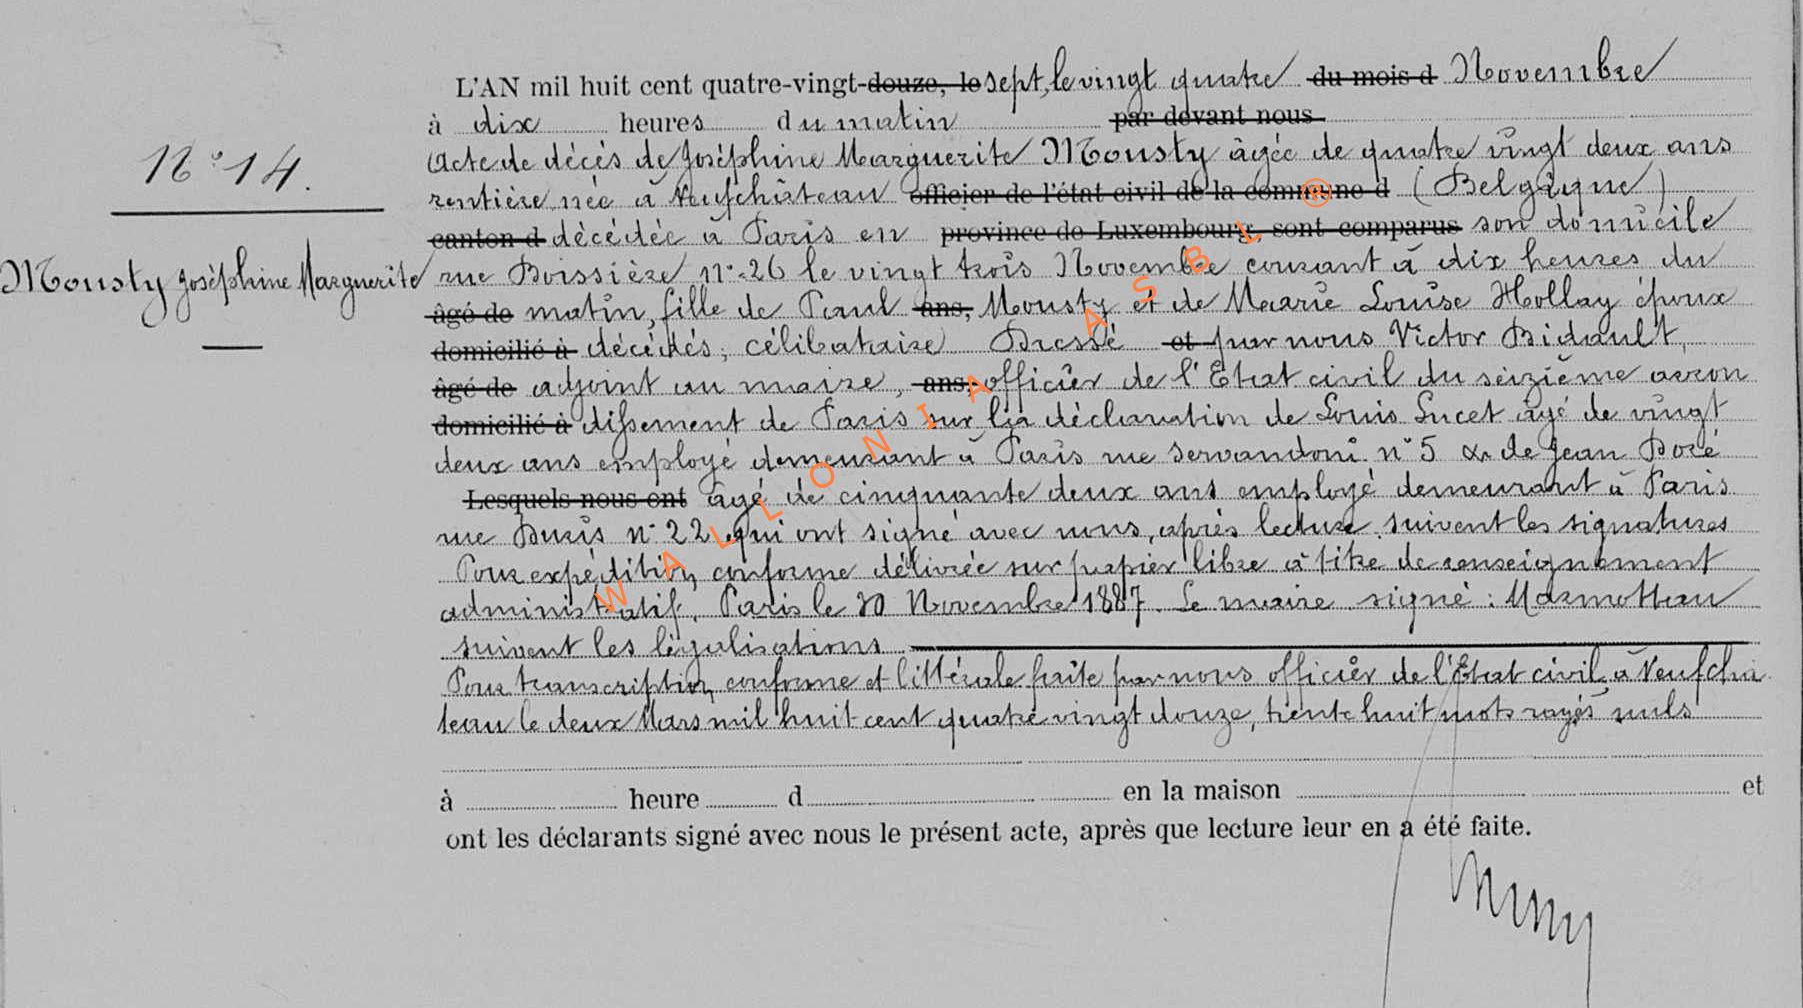 L'AN mil huit cent quatre-vingt-douze, le sept, le vingt quatre du mois d Novembre
à dix heures du matin par devant nous
N° 14.
Acte de décès de Joséphine Marguerite Mousty âgée de quatre vingt deux ans
rentière née à Neufchâteau officier de l'état civil de la commune d (Belgique)
canton d décédée à Paris en province de Luxembourg, sont comparus son domicile
Mousty Joséphine Marguerite
rue Boissière n° 26 le vingt trois Novembre courant à dix heures du
âgé de matin, fille de Paul ans, Mousty et de Marie Louise Hollay époux
domicilié à décédés, célibataire Dressé et par nous Victor Bidault,
âgé de adjoint au maire, ans, officier de l'Etat civil du seizième arron
domicilié à dissement de Paris sur la déclaration de Louis Lucet âgé de vingt
deux ans employé demeurant à Paris rue Servandoni n° 5 & de Jean Doré
Lesquels nous ont âgé de cinquante deux ans employé demeurant à Paris
rue Duris n° 22 qui ont signé avec nous, après lecture. suivent les signatures
Pour expédition conforme délivrée sur papier libre à titre de renseignement
administratif. Paris le 30 Novembre 1887. Le maire signé: Marmottan
suivent les légalisations
Pour transcription conforme et littérale faite par nous officier de l'Etat civil à Neufchâ
teau le deux Mars mil huit cent quatre vingt douze, trente huit mots rayés nuls
à heure d en la maison et
ont les déclarants signé avec nous le présent acte, après que lecture leur en a été faite.
WALLONIA ASBL ®